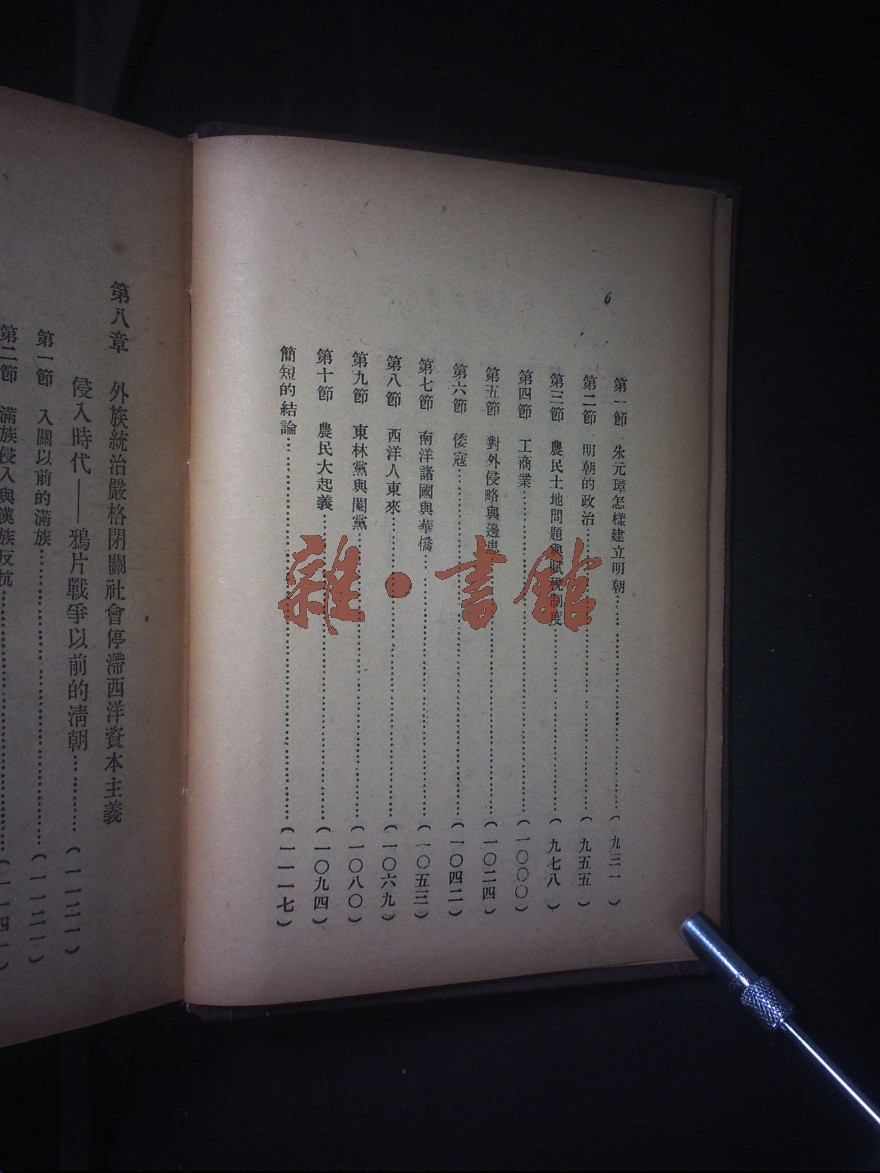 6
第一節 朱元璋怎樣建立明朝……(九三一)
第二節 明朝的政治……(九五五)
第三節 農民土地問題與賦稅制度……(九七八)
第四節 工商業……(一〇〇〇)
第五節 對外侵略與邊患……(一〇二四)
第六節 倭寇……(一〇四二)
第七節 南洋諸國與華僑……(一〇五三)
第八節 西洋人東來……(一〇六九)
第九節 東林黨與閹黨……(一〇八〇)
第十節 農民大起義……(一〇九四)
簡短的結論……(一一一七)
第八章 外族統治嚴格閉關社會停滯西洋資本主義
侵入時代——鴉片戰爭以前的清朝……(一一二一)
第一節 入關以前的滿族……(一一二一)
第二節 滿族侵入與漢族反抗……(一一四一)
雜·書館